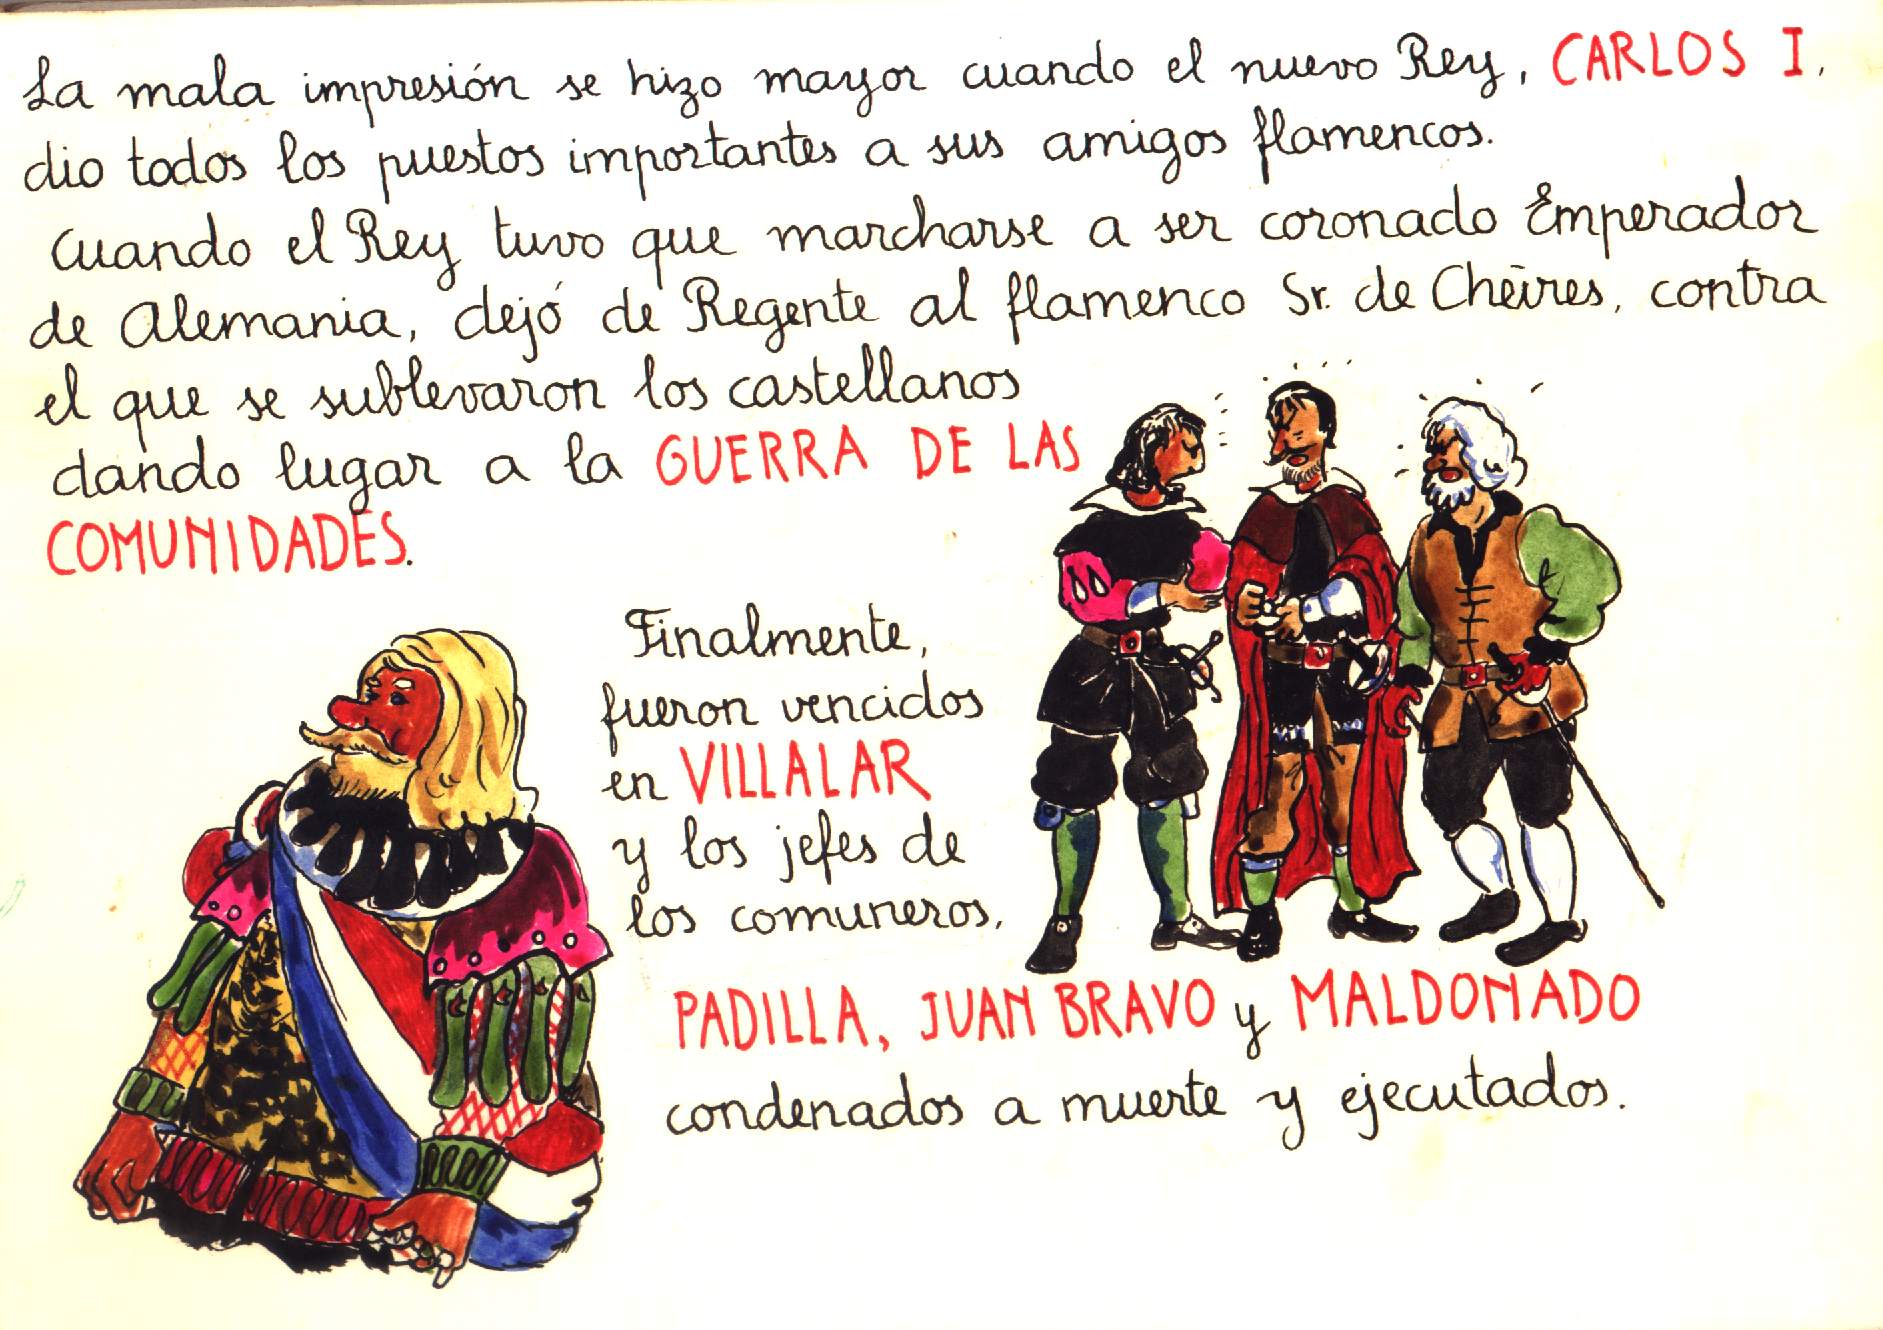 La mala impresión se hizo mayor cuando el nuevo Rey, CARLOS I,
dio todos los puestos importantes a sus amigos flamencos.
Cuando el Rey tuvo que marcharse a ser coronado Emperador
de Alemania, dejó de Regente al flamenco Sr. de Cheires, contra
el que se sublevaron los castellanos
dando lugar a la GUERRA DE LAS
COMUNIDADES.
Finalmente,
fueron vencidos
en VILLALAR
y los jefes de
los comuneros,
PADILLA, JUAN BRAVO y MALDONADO
condenados a muerte y ejecutados.